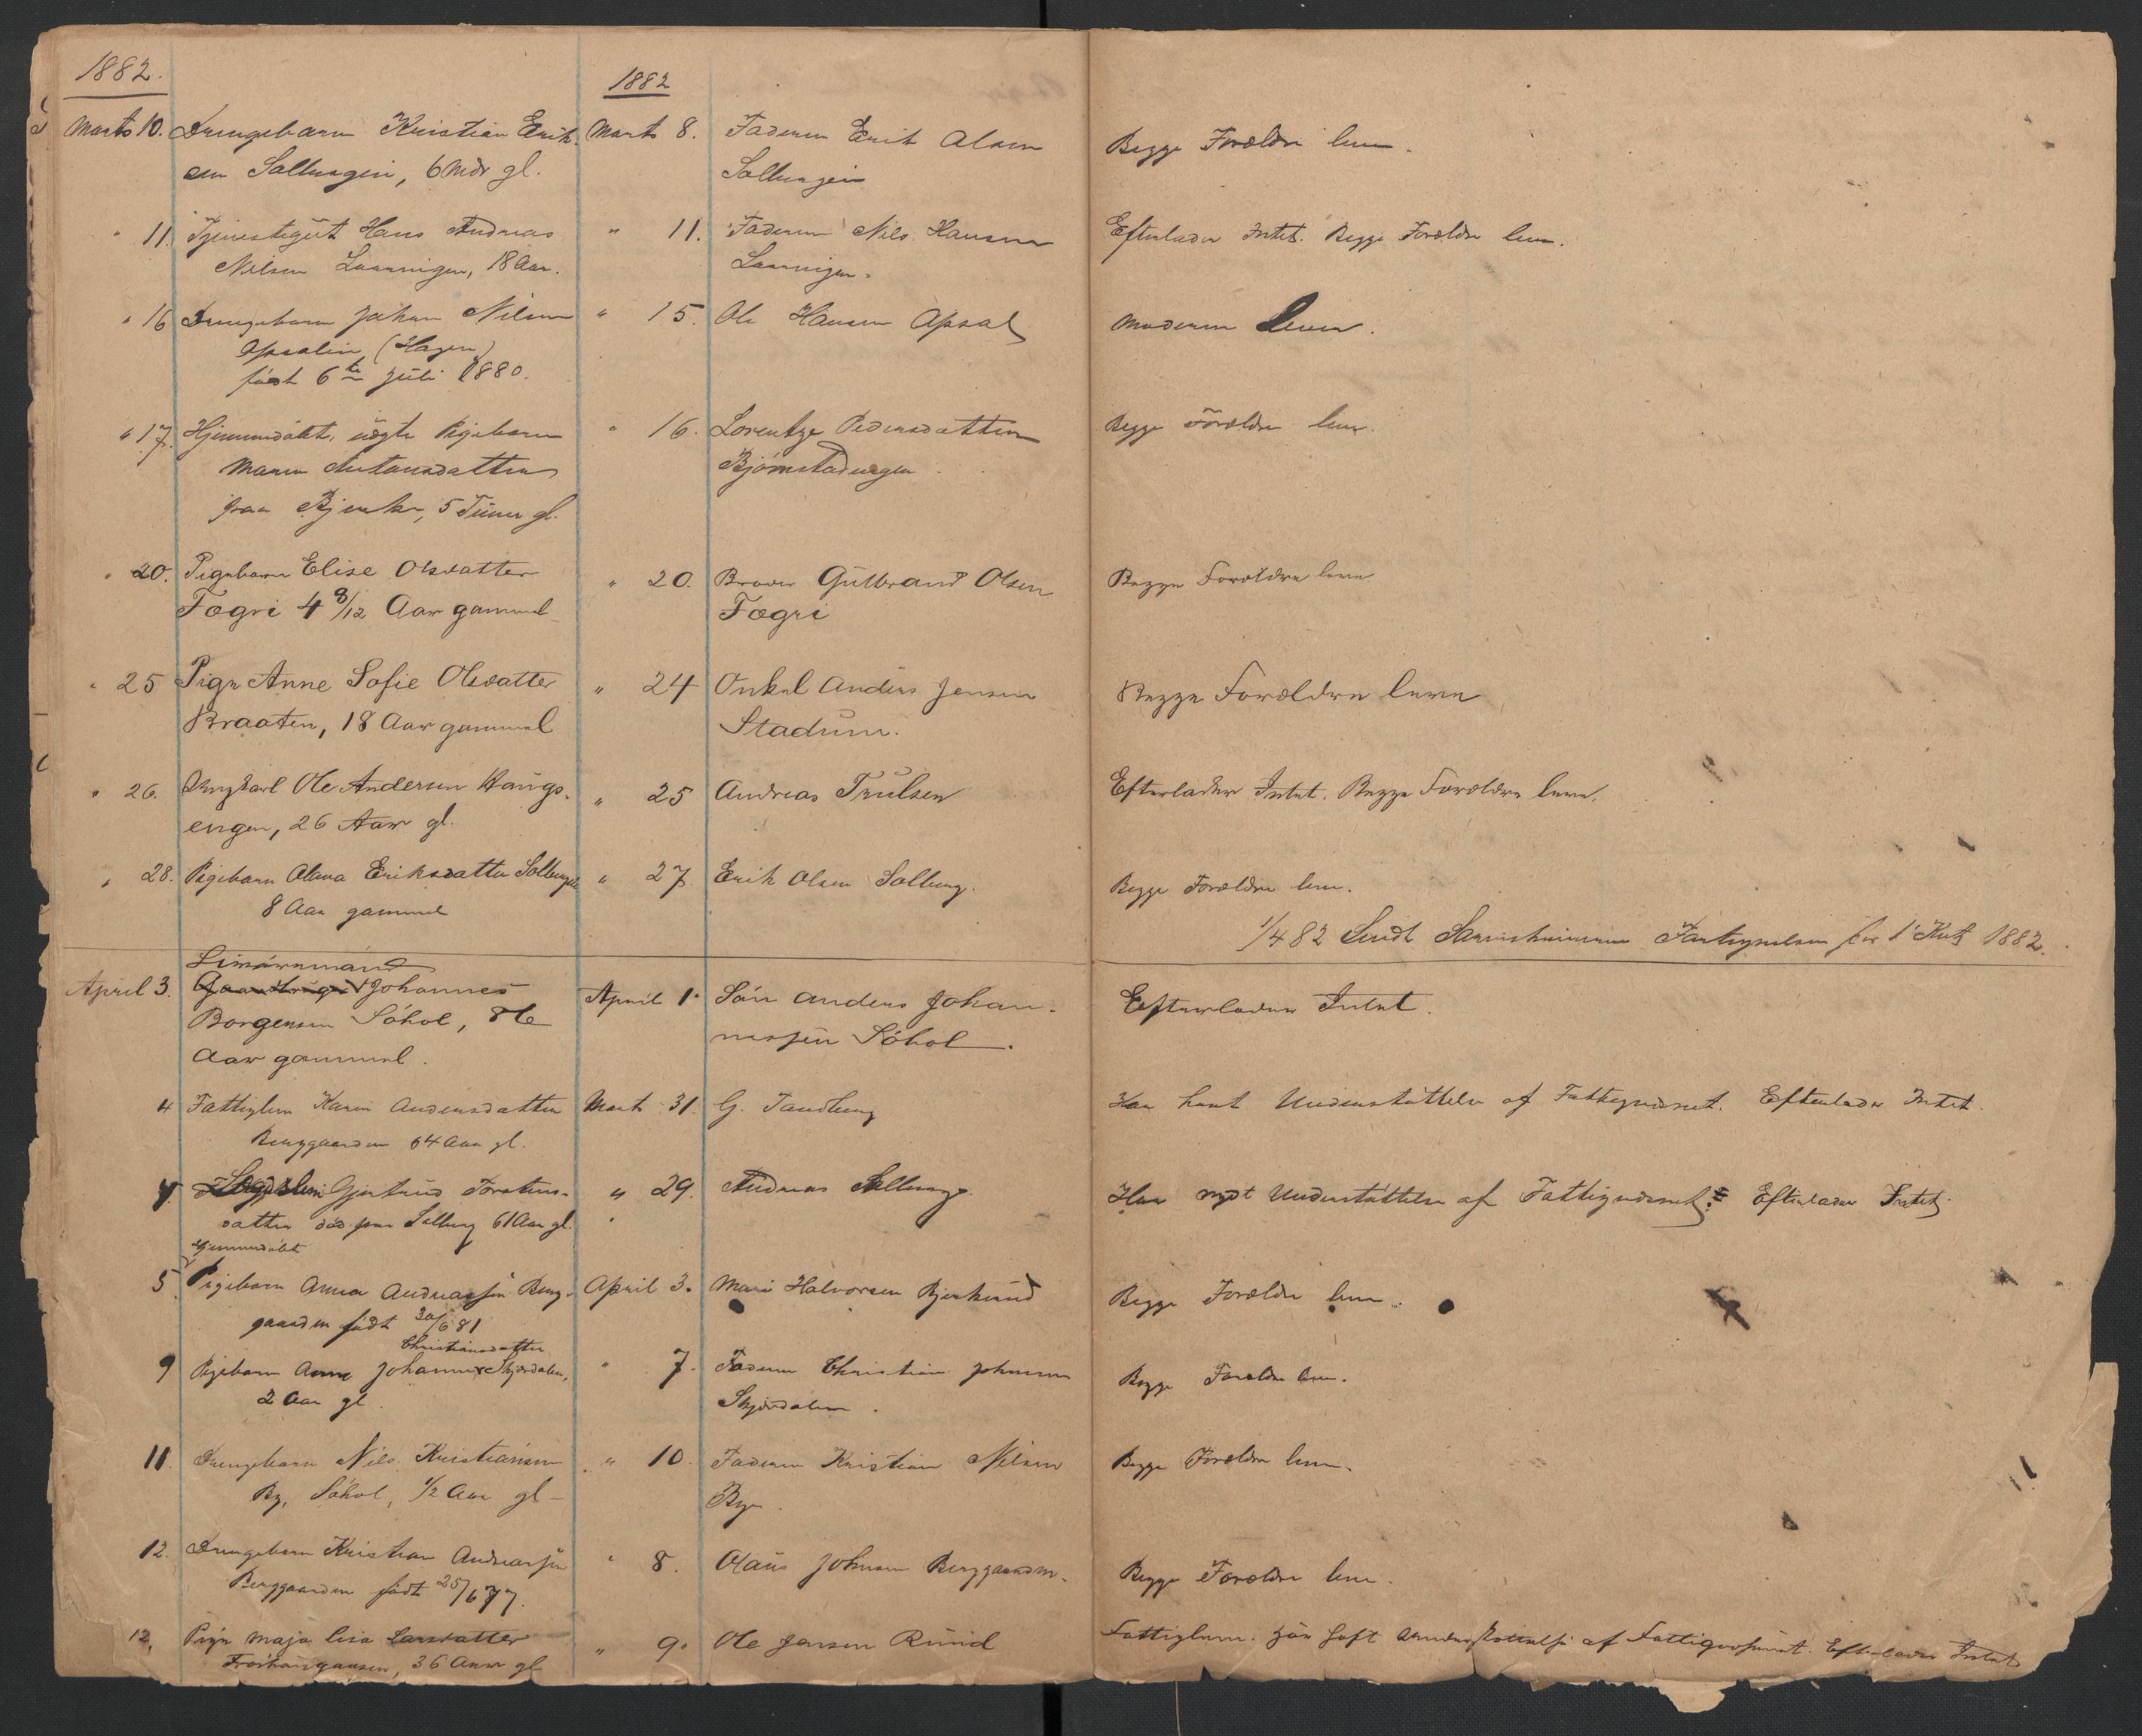 1882.
1882
Marts 10. Drengebarn Kristian Erik- Marts 8. Faderen Erik Olsen Begge Forældre leve.
sen Sollungeie, 6 Mdr gl. Sollungeie
" 11. Tjenestegut Hans Andreas " 11. Faderen Nils Hansen Efterlader Intet. Begge Forældre leve.
Nilsen 18 Aar.
" 16 Drengebarn Johan Nilsen " 15. Ole Hansen Opsal Moderen lever.
Opsaleie (Hagen)
født 6te Juli 1880.
" 17. Hjemmedøbt, uægte Pigebarn " 16. Lorentze Pedersdatter Begge Forældre leve.
Maren Antonsdatter Bjørnstadengen.
fraa Bjerke, 5 Timer gl.
" 20. Pigebarn Elise Olsdatter " 20. Broder Gulbrand Olsen Begge Forældre leve
Fægri 4 8/12 Aar gammel Fægri
" 25 Pige Anne Sofie Olsdatter " 24 Onkel Anders Jensen Begge Forældre leve
Braaten, 18 Aar gammel Stadum.
" 26. Ungkarl Ole Andersen Haugs- " 25 Andreas Trulsen Efterlader Intet. Begge Forældre leve.
engen, 26 Aar gl.
" 28. Pigebarn Olava Eriksdatter " 27. Erik Olsen Sollung. Begge Forældre leve.
8 Aar gammel
1/4 82 Sendt Fortegnelsen for 1' Kvt 1882.
April 3. Johannes April 1. Søn Anders Johan- Efterlader Intet.
Borgersen Søhol, 86 nessen Søhol.
Aar gammel.
4 Fattiglem Karen Andersdatter Marts 31. G. Tandberg Har havt Understøttelse af Fattigvæsnet. Efterlader Intet.
Berggaarden 64 Aar gl.
4. Gjertrud Torstens- " 29. Andreas Sollunge. Har nydt Understøttelse af Fattigvæsnet. Efterlader Intet.
datter død paa Sollung 61 Aar gl.
Hjemmedøbt
5. Pigebarn Anna Andreassen Berg- April 3. Mari Halvorsen Bjerkerud Begge Forældre leve.
gaarden født 30/6 81
Christiansdatter
9 Pigebarn Anne Johanne Skjærdalen, " 7. Faderen Christian Johnsen Begge Forældre leve.
2 Aar gl. Skjærdalen.
11. Drengebarn Nils Kristiansen " 10. Faderen Kristian Nilsen Begge Forældre leve.
By, Søhol, 1/2 Aar gl- Bye.
12. Drengebarn Kristian Andreassen " 8. Olaus Johnsen Berggaarden. Begge Forældre leve.
Berggaarden født 25/6 77.
12. Pige Maja Lisa Larsdatter " 9. Ole Jensen Ruud Fattiglem. Har haft Understøttelse af Fattigvæsnet. Efterlader Intet
36 Aar gl